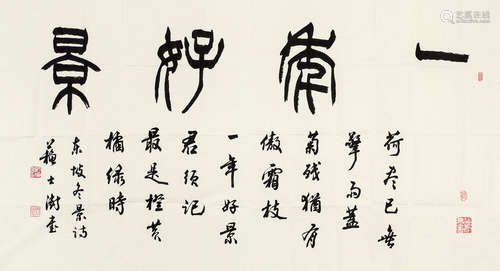 一年好景
荷尽已无
擎雨盖
菊残犹有
傲霜枝
一年好景
君须记
最是橙黄
橘绿时
东坡冬景诗
苏士澍书